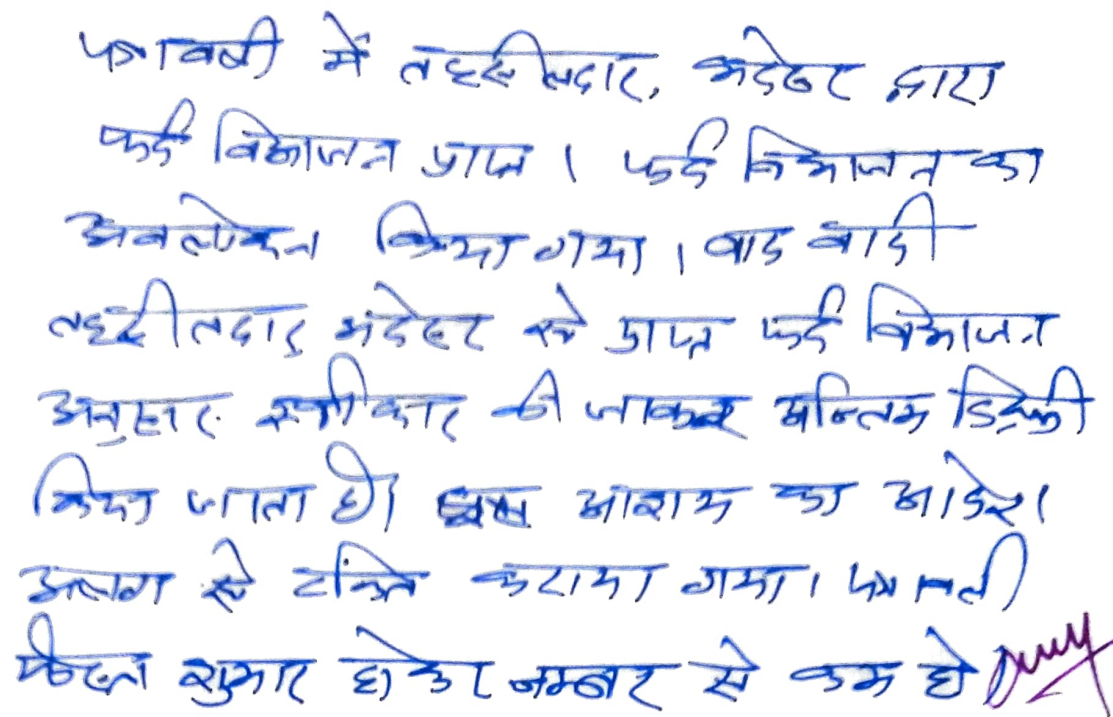 पत्रावली में तहसीलदार, भदेसर द्वारा
फर्द विभाजन प्राप्त । फर्द विभाजन का
अवलोकन किया गया । वाद वादी
तहसीलदार भदेसर से प्राप्त फर्द विभाजन
अनुसार स्वीकार की जाकर अन्तिम डिक्री
किया जाता है। इस आशय का आदेश
अलग से टंकित कराया गया। पत्रावली
फैसल शुमार होकर नम्बर से कम हो